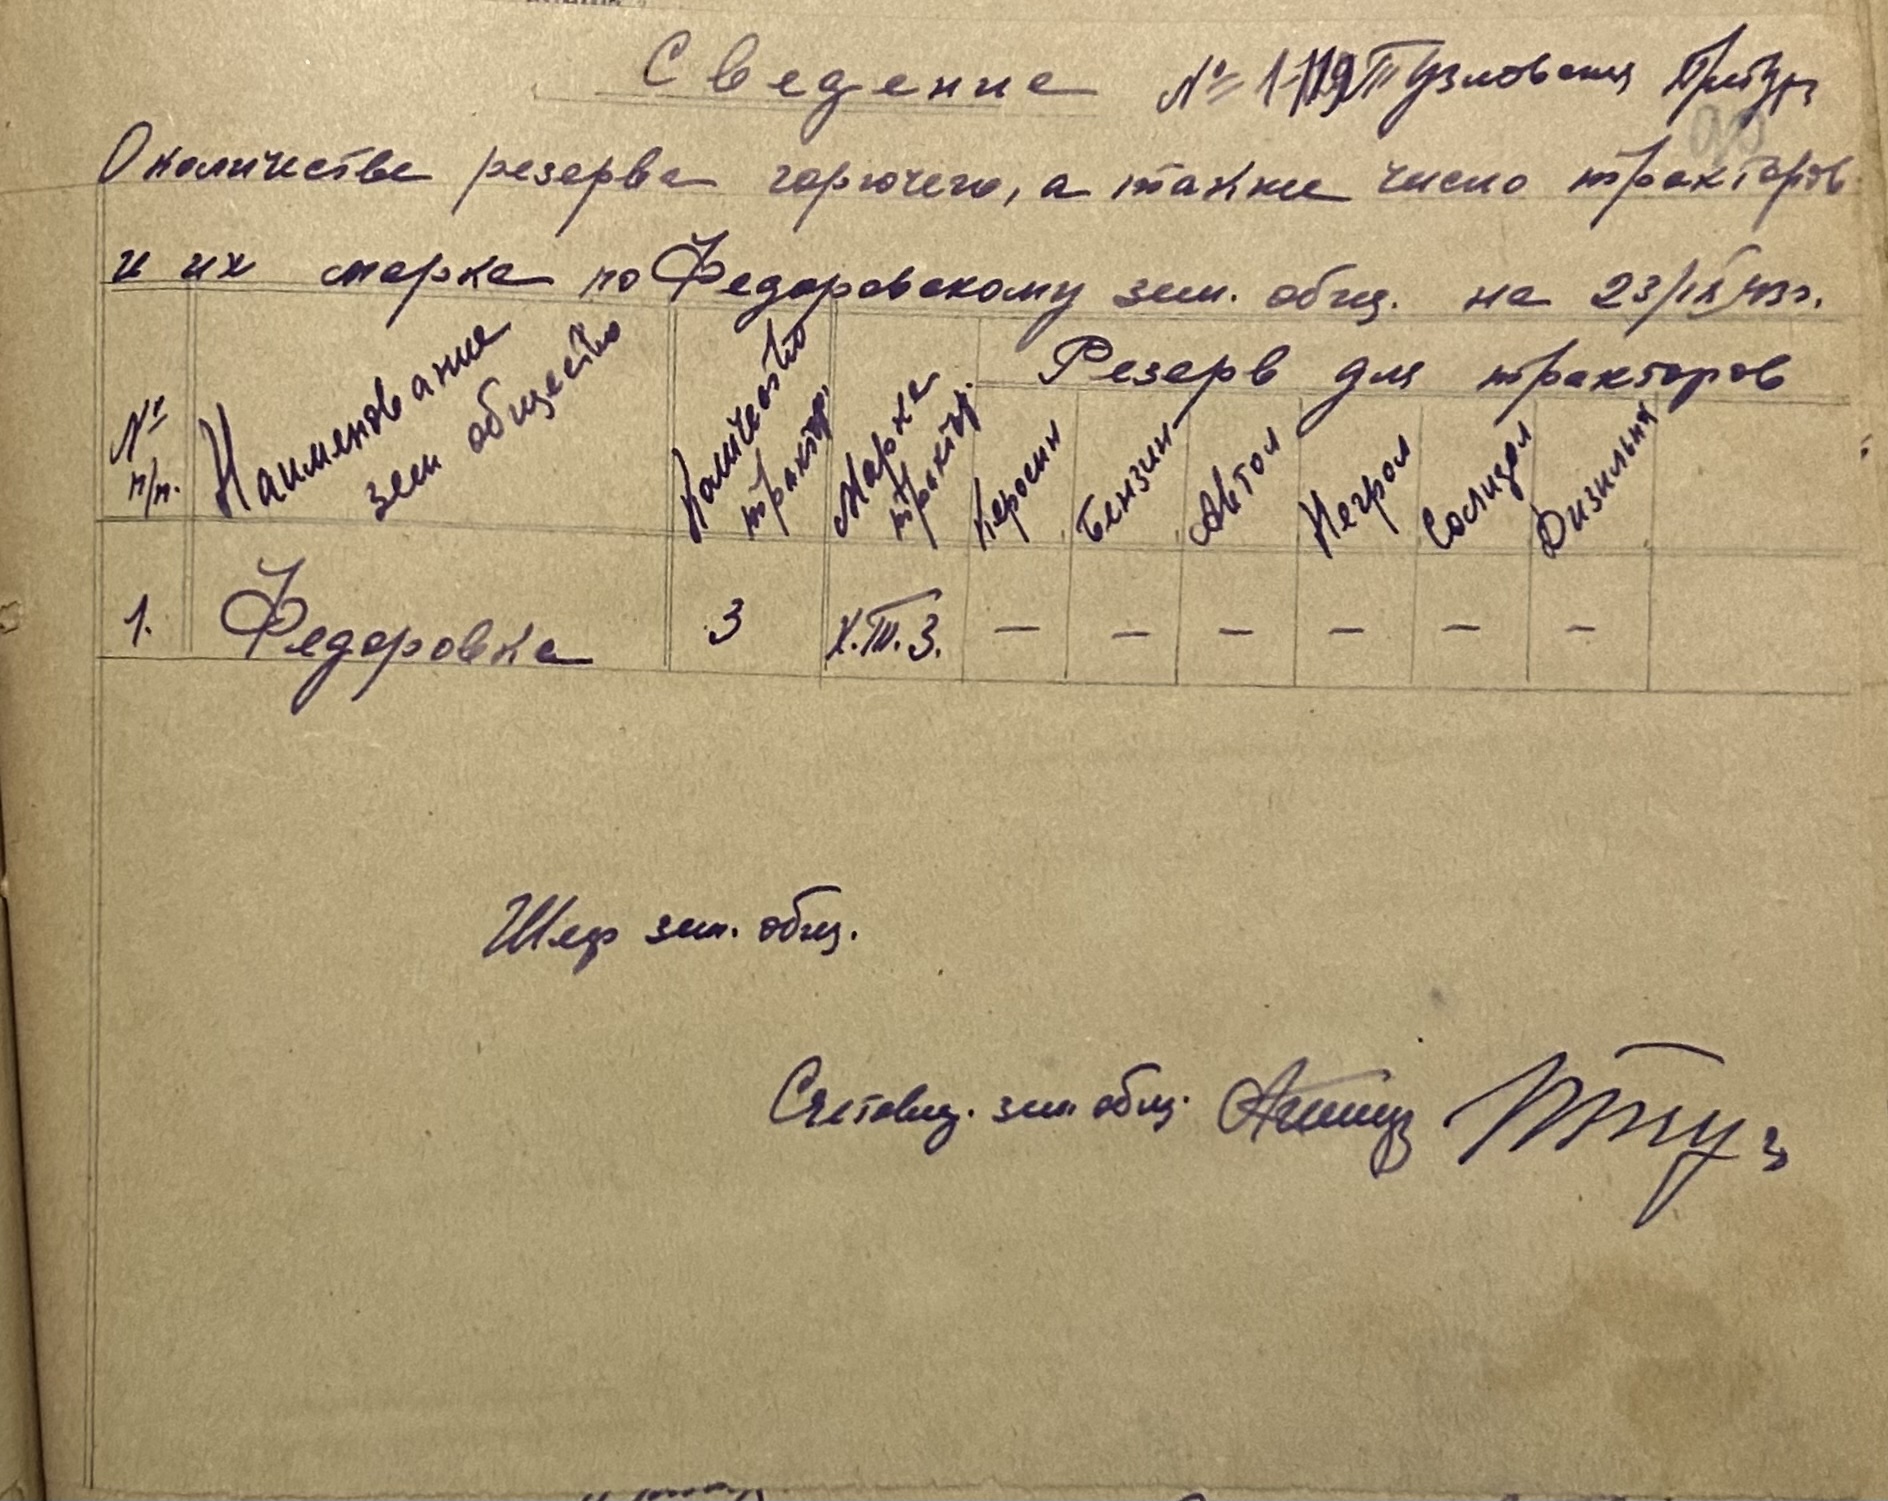 Сведение № 1-119 Тузловская
О количестве резерва горючего, а также число тракторов
и их марка по Федоровскому зем. общ. на 23/IX 43г.
№ п/п. Наименование зем общество Количество трактор. Марка трактор. Резерв для тракторов
Керосин Бензин Автол Негрол Солидол Дизильная
1. Федоровка 3 Х.Т.З. — — — — — —
Шеф зем. общ.
Счетовод. зем. общ.